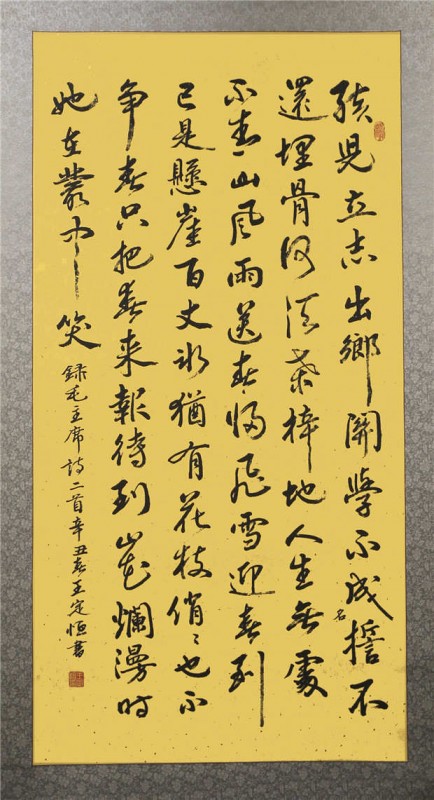 孩兒立志出鄉關學不成名誓不
還埋骨何須桑梓地人生無處
不青山風雨送春歸飛雪迎春到
已是懸崖百丈冰猶有花枝俏〻也不
争春只把春来報待到山花爛漫時
她在叢中笑
録毛主席詩二首辛丑春王定恒書